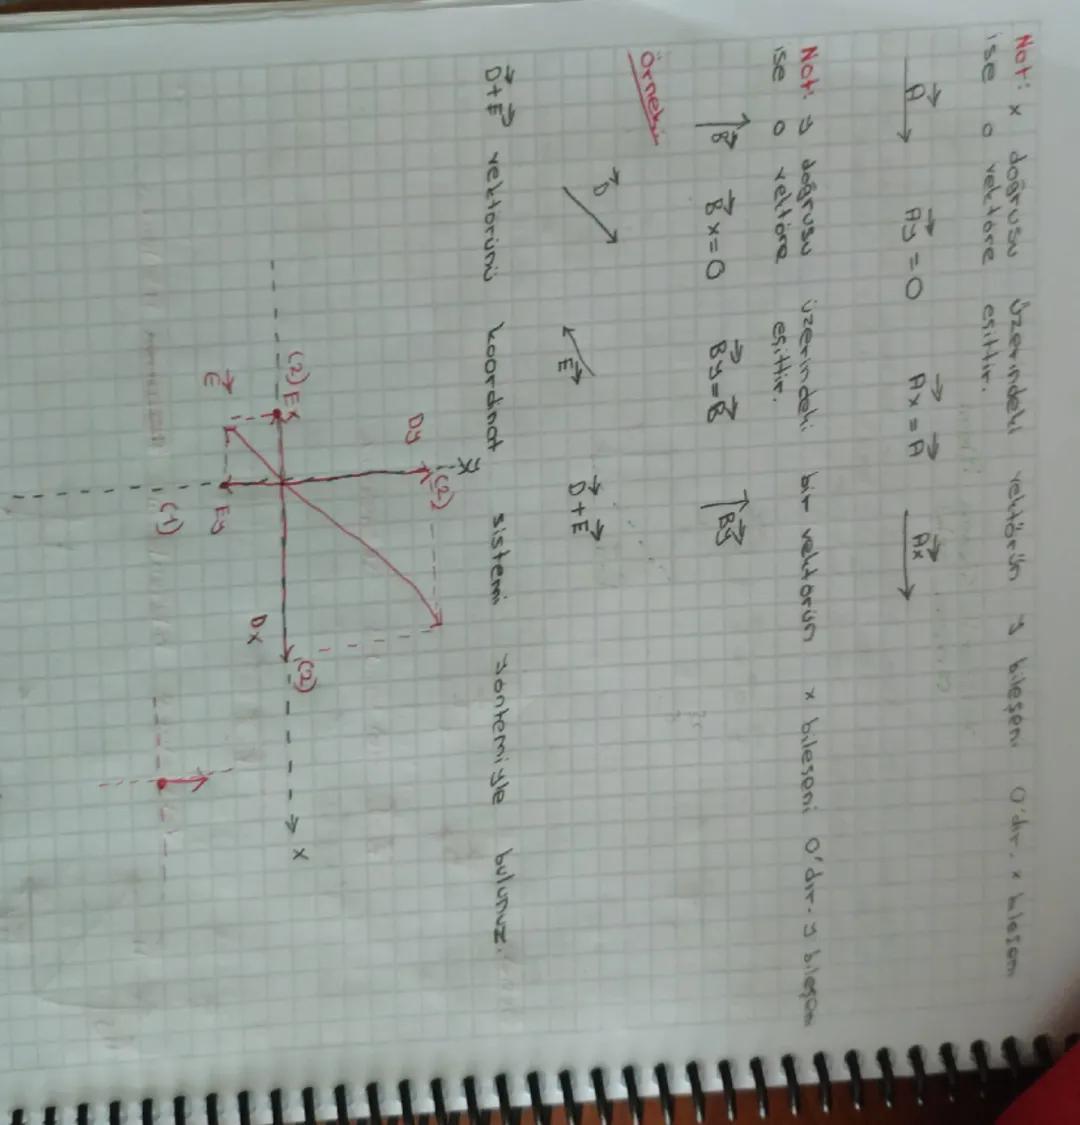 Not: x doğrusu üzerindeki vektörün y bileşeni 0'dır. x bileşeni
ise o vektöre eşittir.
A⃗ A⃗y = 0 A⃗x = A⃗ A⃗x
Not: y doğrusu üzerindeki bir vektörün x bileşeni 0'dır. y bileşeni
ise o vektöre eşittir.
B⃗ B⃗x = 0 B⃗y = B⃗ B⃗y
Örnek:
D⃗ E⃗ D⃗+E⃗
D⃗+E⃗ vektörünü koordinat sistemi yöntemiyle bulunuz.
y
Dy (2)
(2) Ex (2) x
Dx
E⃗ Ey
(1)